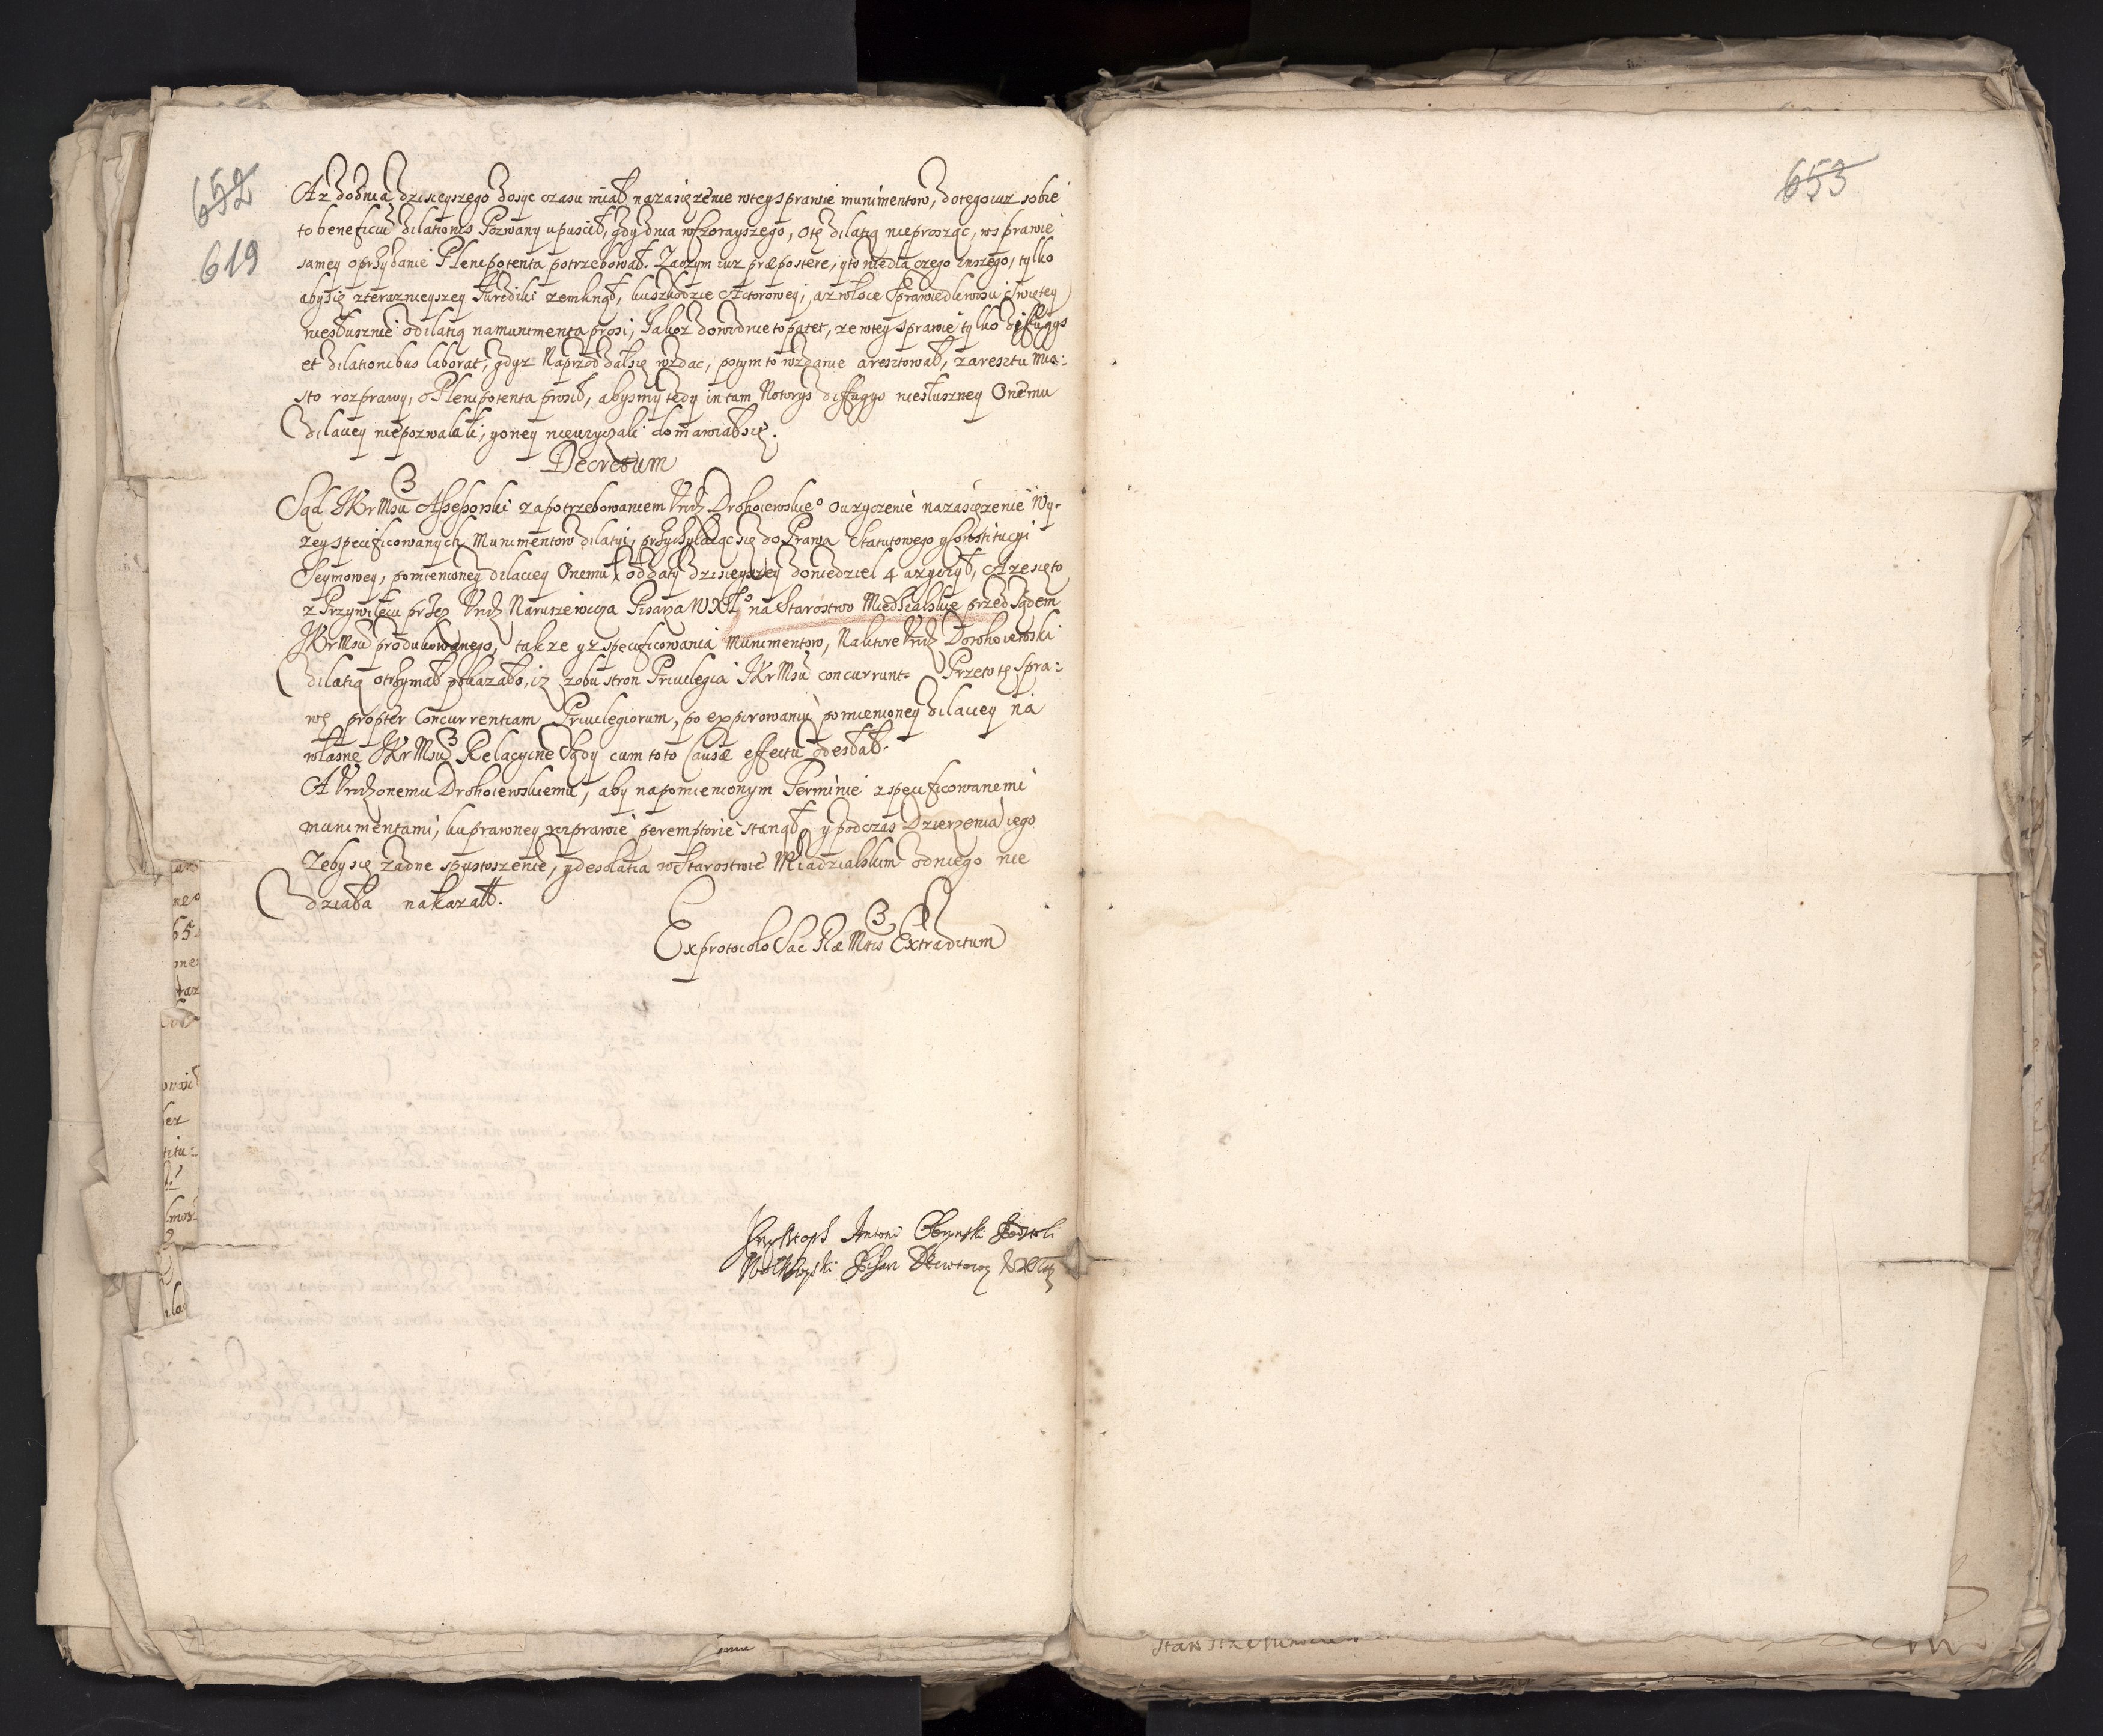 652
619
Aż do dnia dzisieyszego dosyc czasu miał na zasięzenie w tey sprawie munimentow, do tego iuz sobie
to beneficiũ dilationis Pozwany upuscił, gdy dnia wczorayszego, o tę dilatią nie prosząc, w sprawie
samey o przydanie Plenipotenta potrzebował. Zaczym iuz præpostere, y to nie dla czego inszego, tylko
aby się z terazniejszey Juredicki zemknął, ku szkodzie Actorowey, a zwłoce Sprawiedliwosci Swiętey
niesłusznie o dilatią na munimenta prosi, Jakoz dowodnie to patet, ze w tey sprawie tylko diffugys
et dilationibus laborat, gdyz Naprzod dał się wzdac, potym to wzdanie aresztował, z aresztu mia:
sto rozprawy, o Plenipotenta prosił, abysmy tedy in tam Notorys diffugys niesłuszney Onemu
dilaciey nie pozwalali, y oney nie uzyczali domawiał się.
Decretum
Sąd JKr Msci Assessorski za potrzebowaniem Urodz Drohoiewskieº o uzyczenie na zasięzenie Wy-
zey specificowanych Munimentow dilatyi, przychylaiąc się do Prawa Statutowego y Constitucyi
Seymowey, pomienioney dilaciey Onemu od daty dzisieyszey do niedziel 4 uzyczył, A ze się to
z Przywileiu przez Urodz Naruszewicza Pisarza WXLº na Starostwo Miedzialskie przed Sądem
JKr Msci produkowanego, takze y z specificowania Munimentow, Na ktore Urodz Dorohoiewski
dilatią otrzymał pokazało, iz z obu stron Priuilegia JKr Msci concurrunt= Przeto tę spra:
wę propter Concurrentiam Priuilegiorum, po expirowaniu pomienioney dilaciey na
własne JKr Msci Relacyine Sądy cum toto Causæ effectu odesłał.
A Urodzonemu Drohoiewskiemu, aby na pomienionym Terminie z specificowanemi
munimentami, ku prawney rozprawie peremptorie stanął y podczas Dzierzenia iego
Zeby się zadne spustoszenie, y desolatia w Starostwie Miadzialskim od niego nie
działa nakazał.
Ex protocolo Sac Ræ Mttis Extraditum
Antoni
Pisarz Decretowy
653